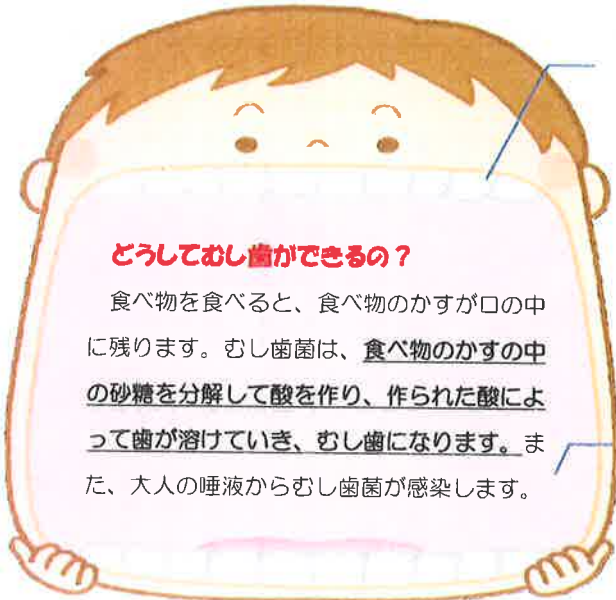 どうしてむし歯ができるの？
食べ物を食べると、食べ物のかすが口の中
に残ります。むし歯菌は、食べ物のかすの中
の砂糖を分解して酸を作り、作られた酸によ
って歯が溶けていき、むし歯になります。ま
た、大人の唾液からむし歯菌が感染します。